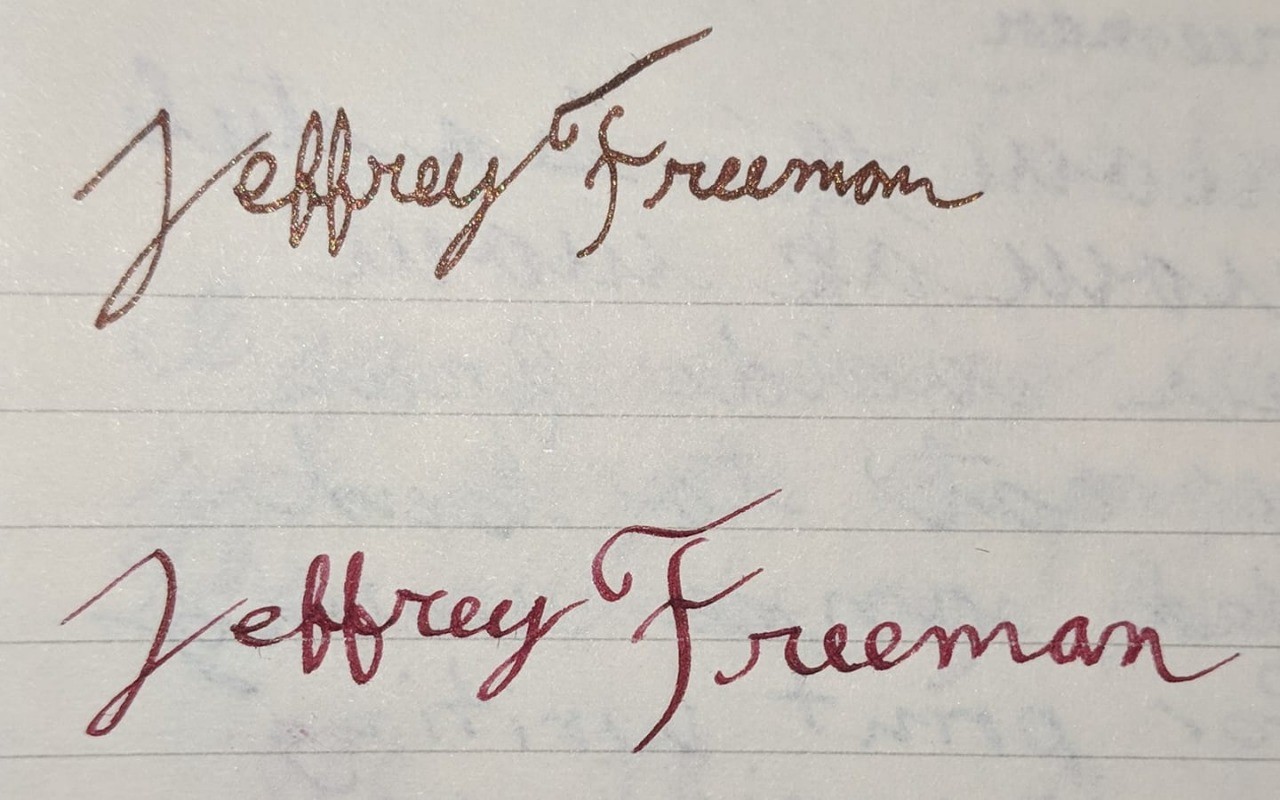 Jeffrey Freeman
Jeffrey Freeman